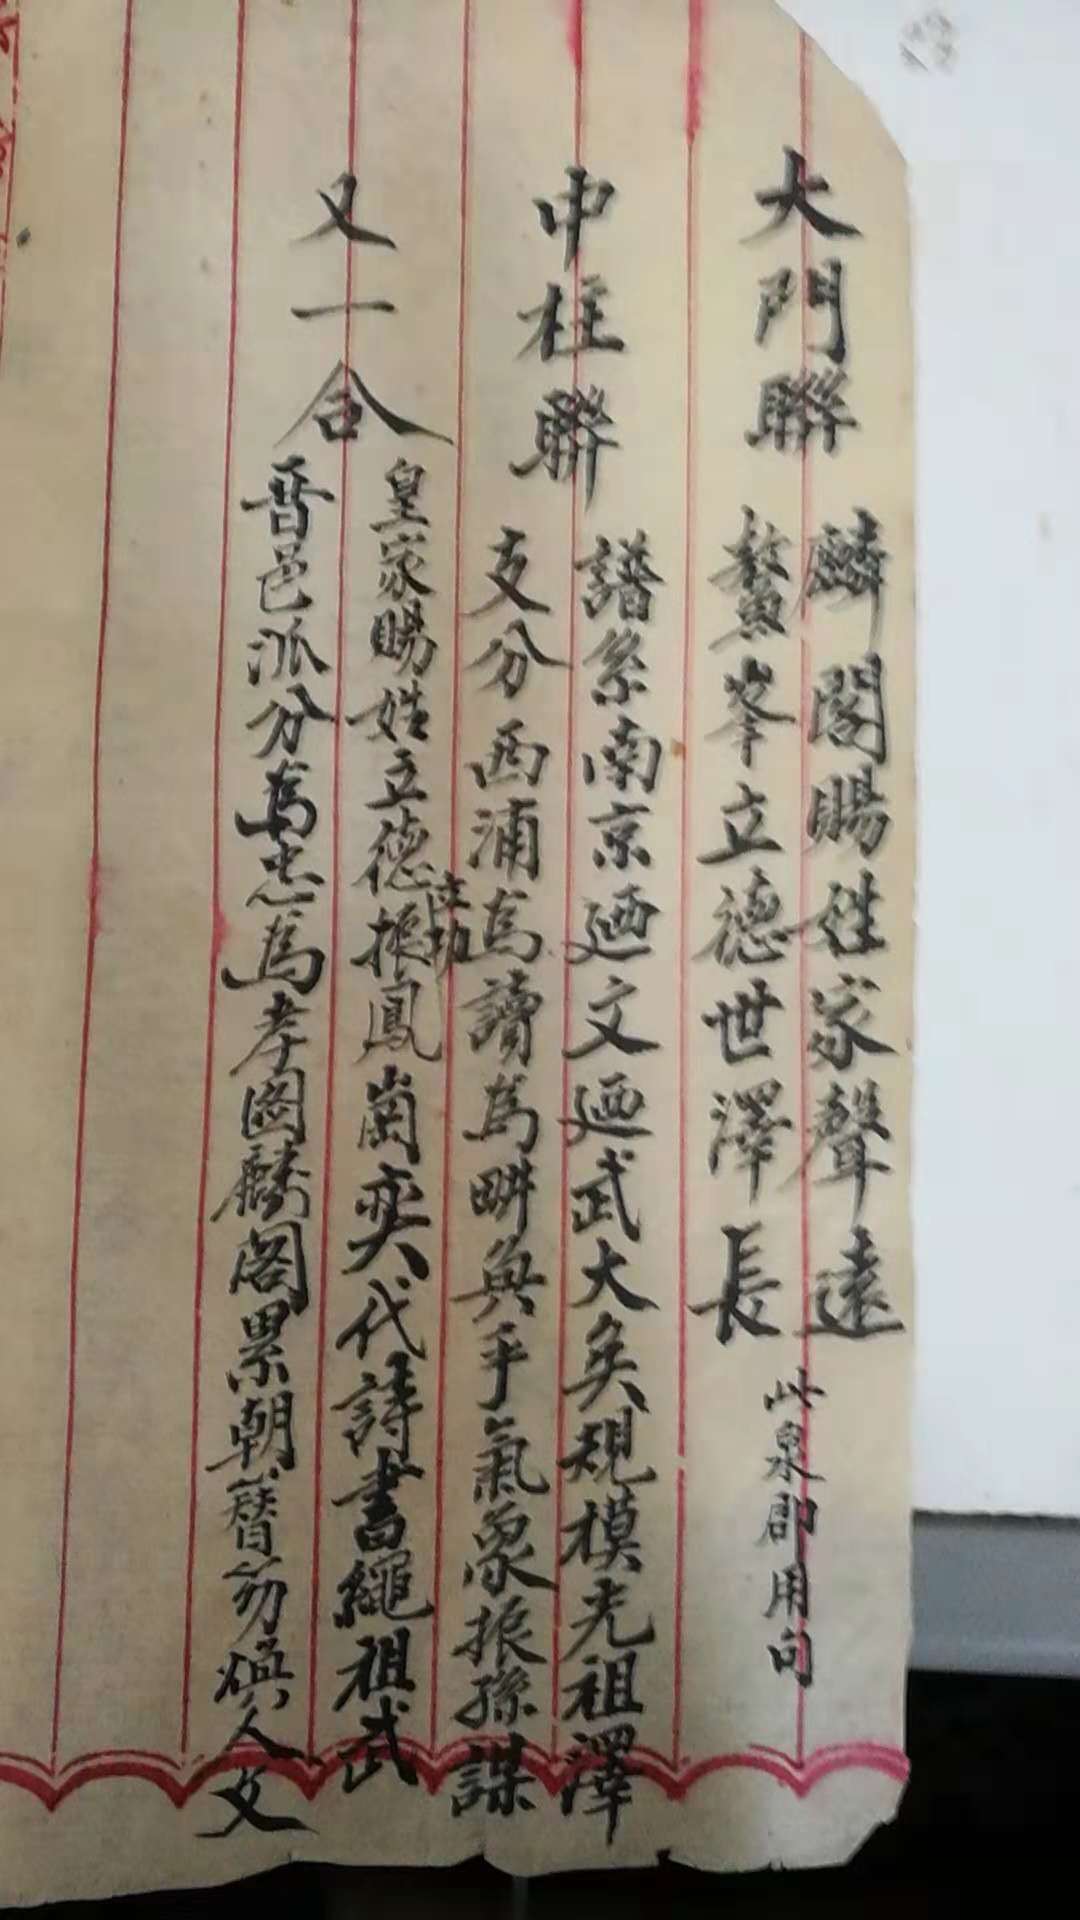 大門聯
麟閣賜姓家聲遠
鰲峯立德世澤長
此泉郡用句
中柱聯
譜系南京廼文廼武大矣規模光祖澤
支分西浦為讀為畊與乎氣象振孫謀
又一合
皇家賜姓立德立功振鳳崗奕代詩書繩祖武
晋邑派分為忠為孝圖麟閣累朝簪笏煥人文